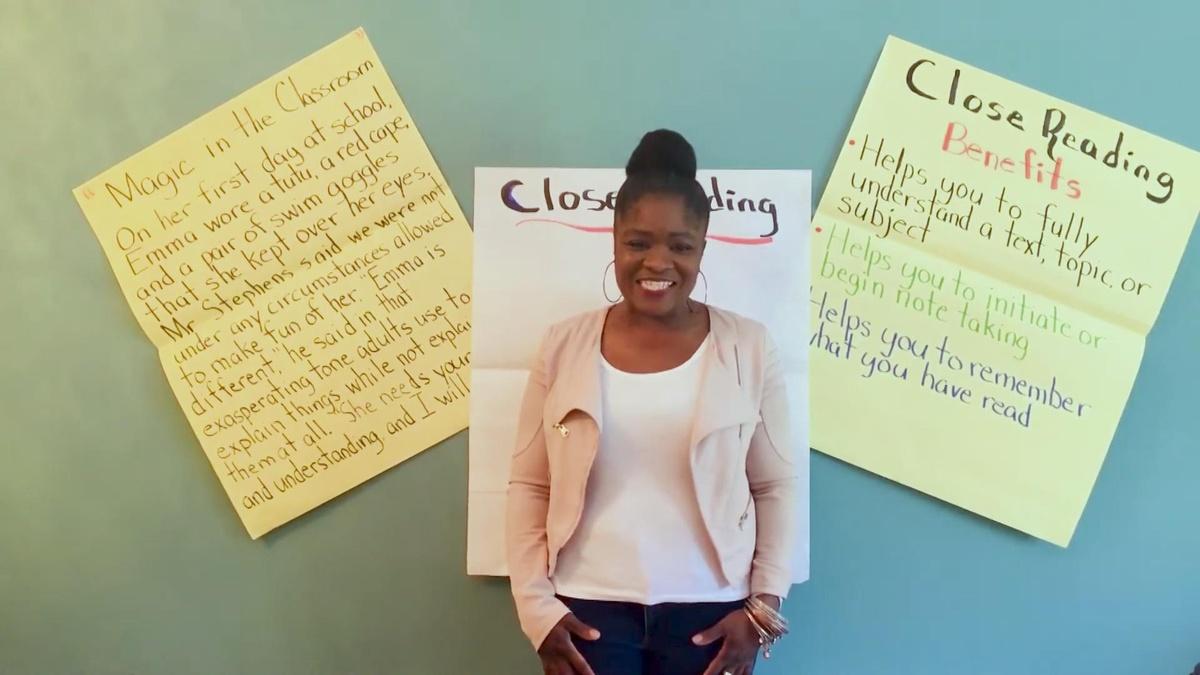 "Magic in the Classroom
On her first day at school,
Emma wore a tutu, a red cape,
and a pair of swim goggles
that she kept over her eyes.
Mr. Stephens said we were not
under any circumstances allowed
to make fun of her. "Emma is
different," he said in that
exasperating tone adults use to
explain things while not explai
them at all. "She needs your
and understanding. and I will
Close ding
Close Reading
Benefits
• Helps you to fully
understand a text, topic, or
subject
• Helps you to initiate or
begin note taking
Helps you to remember
what you have read